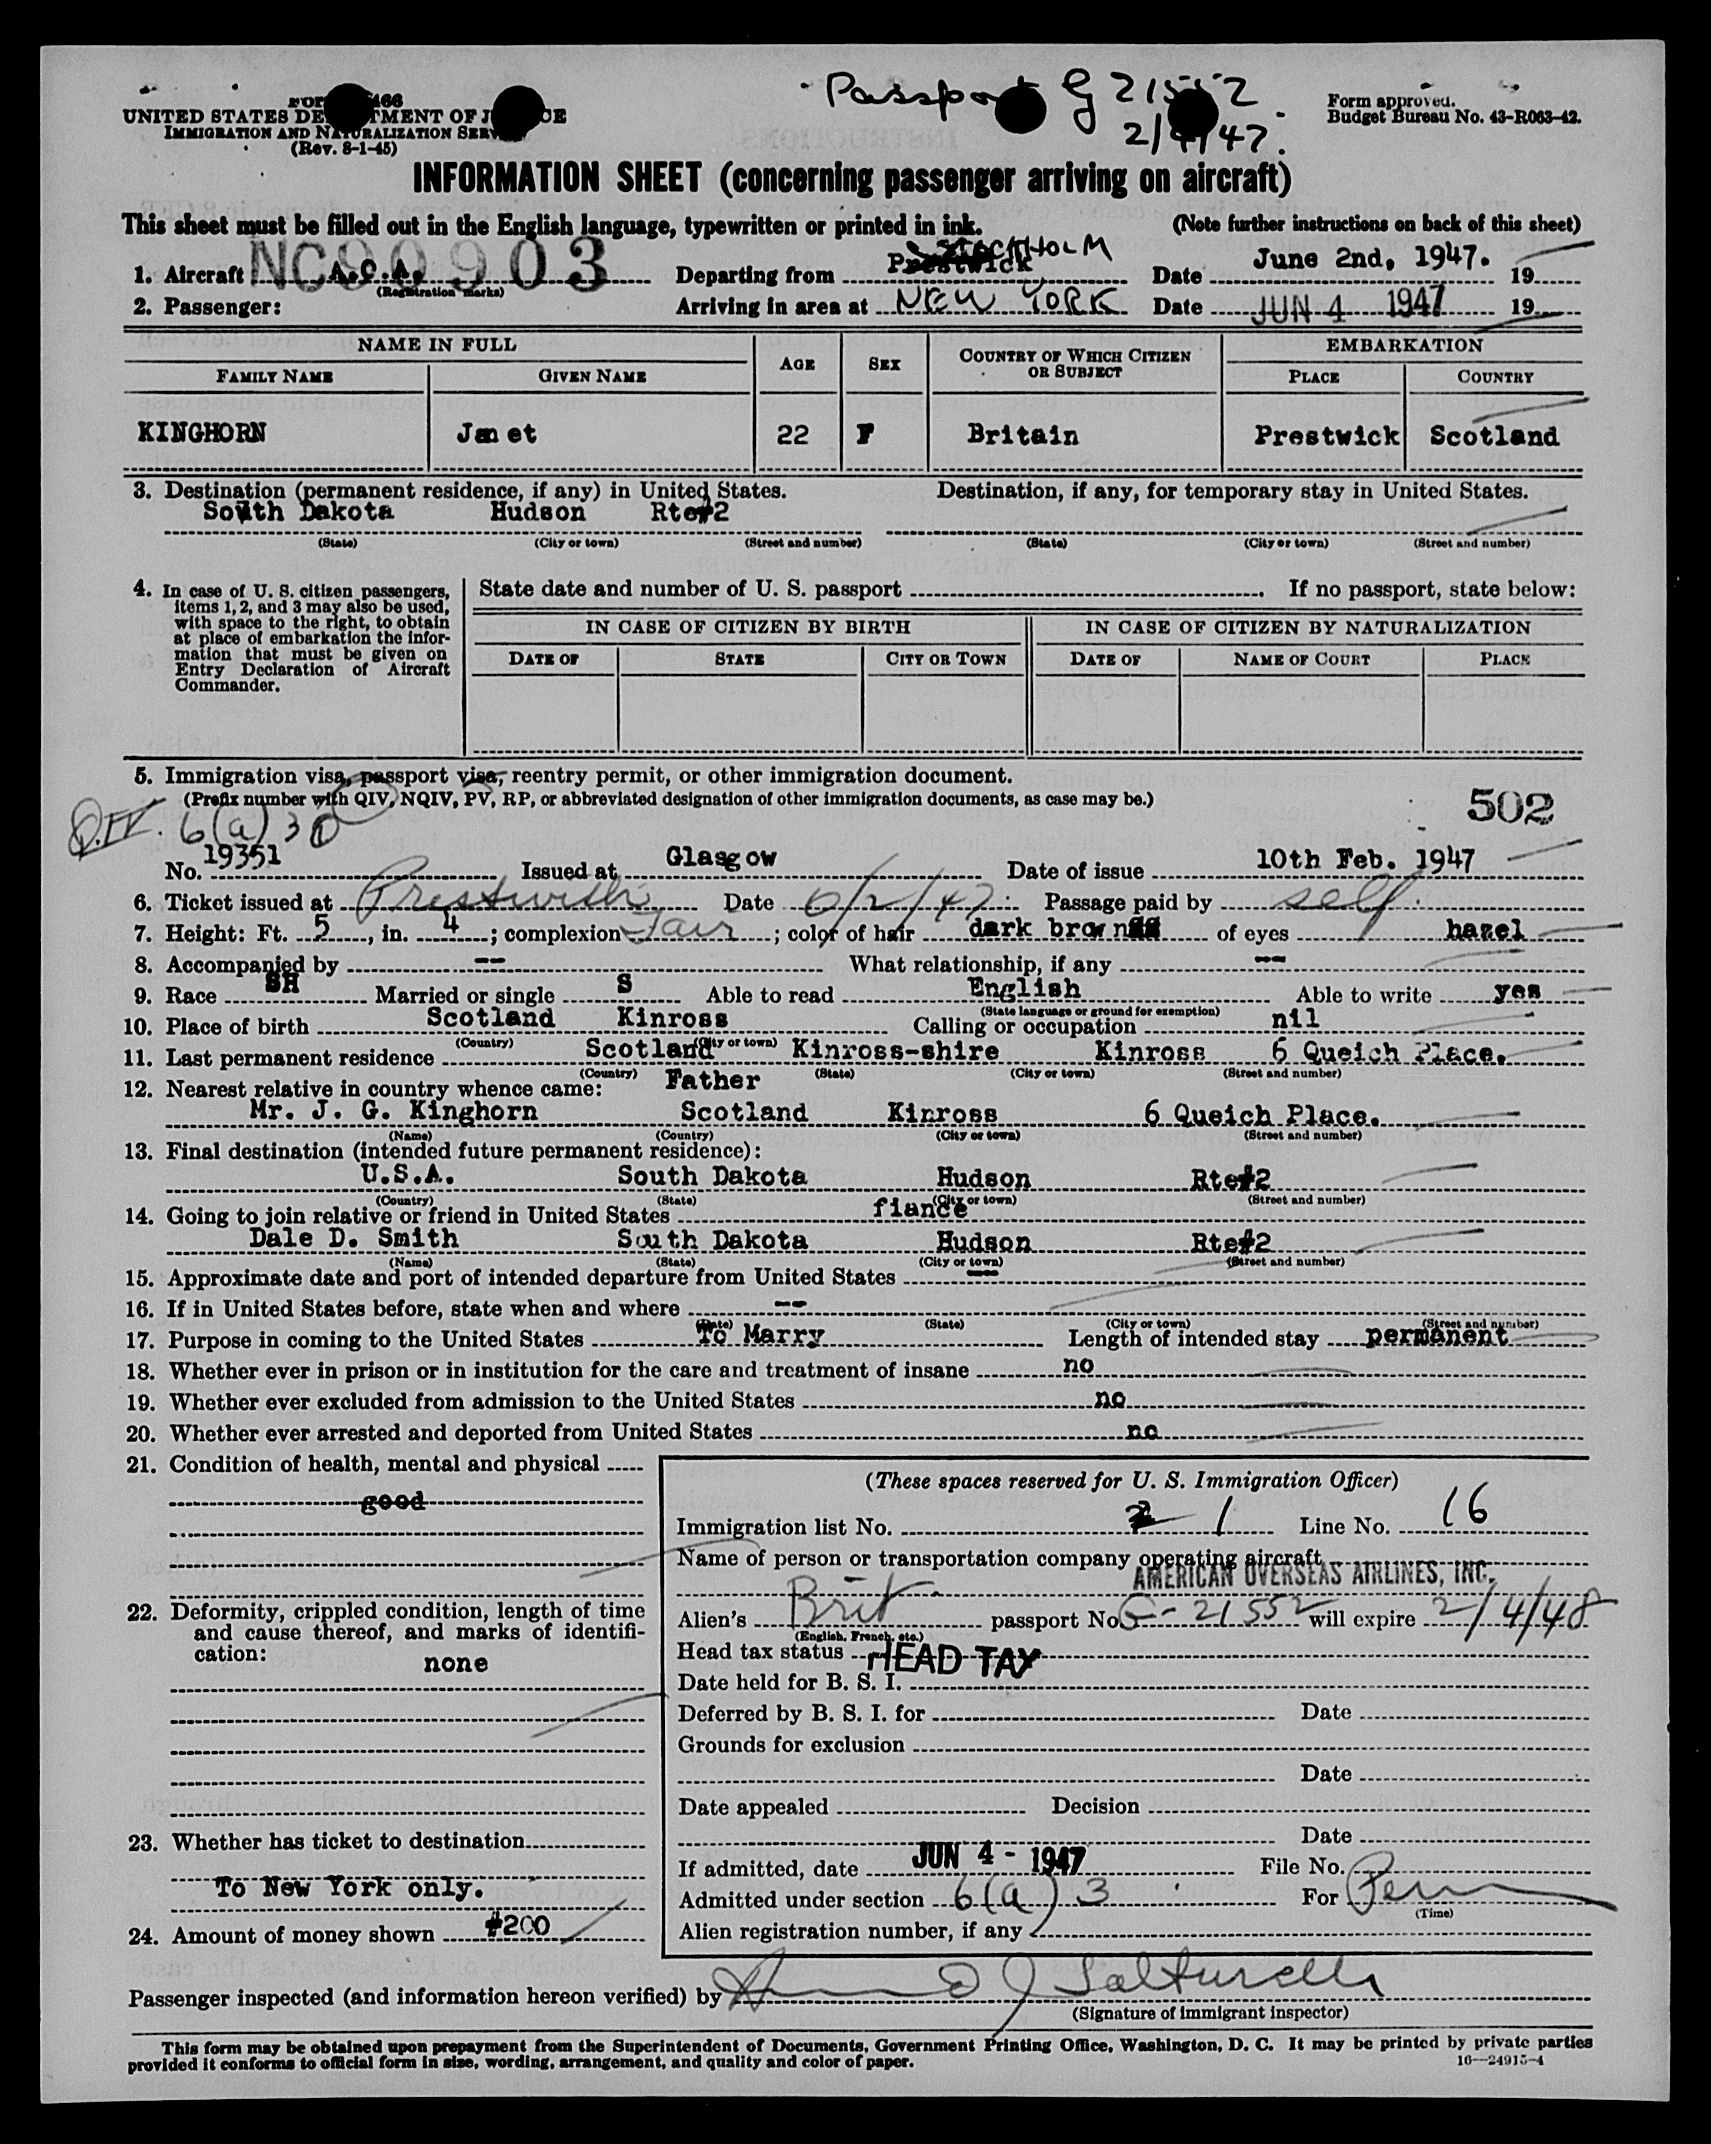 Passport G 21552
2/4/47.
UNITED STATES DE TMENT OF J CE
IMMIGRATION AND NATURALIZATION SERV
(Rev. 8-1-45)
Form approved.
Budget Bureau No. 43-R063-42.
INFORMATION SHEET (concerning passenger arriving on aircraft)
This sheet must be filled out in the English language, typewritten or printed in ink. (Note further instructions on back of this sheet)
1. Aircraft NC90903 A.O.A. Departing from Prestwick STOCKHOLM Date June 2nd, 1947. 19
(Registration marks)
2. Passenger: Arriving in area at NEW YORK Date JUN 4 1947 19
NAME IN FULL AGE SEX COUNTRY OF WHICH CITIZEN OR SUBJECT EMBARKATION
FAMILY NAME GIVEN NAME PLACE COUNTRY
KINGHORN Janet 22 F Britain Prestwick Scotland
3. Destination (permanent residence, if any) in United States. Destination, if any, for temporary stay in United States.
South Dakota Hudson Rte#2
(State) (City or town) (Street and number) (State) (City or town) (Street and number)
4. In case of U. S. citizen passengers, items 1, 2, and 3 may also be used, with space to the right, to obtain at place of embarkation the information that must be given on Entry Declaration of Aircraft Commander.
State date and number of U. S. passport . If no passport, state below:
IN CASE OF CITIZEN BY BIRTH IN CASE OF CITIZEN BY NATURALIZATION
DATE OF STATE CITY OR TOWN DATE OF NAME OF COURT PLACE
5. Immigration visa, passport visa, reentry permit, or other immigration document.
(Prefix number with QIV, NQIV, PV, RP, or abbreviated designation of other immigration documents, as case may be.)
502
Q.IV. 6(a)3
No. 19351 Issued at Glasgow Date of issue 10th Feb. 1947
6. Ticket issued at Prestwick Date 6/2/47 Passage paid by self.
7. Height: Ft. 5, in. 4; complexion Fair; color of hair dark brown of eyes hazel
8. Accompanied by -- What relationship, if any --
9. Race SH Married or single S Able to read English Able to write yes
(State language or ground for exemption)
10. Place of birth Scotland Kinross Calling or occupation nil
(Country) (City or town)
11. Last permanent residence Scotland Kinross-shire Kinross 6 Queich Place.
(Country) (State) (City or town) (Street and number)
12. Nearest relative in country whence came: Father
Mr. J. G. Kinghorn Scotland Kinross 6 Queich Place.
(Name) (Country) (City or town) (Street and number)
13. Final destination (intended future permanent residence):
U.S.A. South Dakota Hudson Rte#2
(Country) (State) (City or town) (Street and number)
14. Going to join relative or friend in United States fiance
Dale D. Smith South Dakota Hudson Rte#2
(Name) (State) (City or town) (Street and number)
15. Approximate date and port of intended departure from United States ---
16. If in United States before, state when and where --
(Date) (State) (City or town) (Street and number)
17. Purpose in coming to the United States To Marry Length of intended stay permanent
18. Whether ever in prison or in institution for the care and treatment of insane no
19. Whether ever excluded from admission to the United States no
20. Whether ever arrested and deported from United States no
21. Condition of health, mental and physical
good
22. Deformity, crippled condition, length of time and cause thereof, and marks of identification:
none
23. Whether has ticket to destination
To New York only.
24. Amount of money shown $200
(These spaces reserved for U. S. Immigration Officer)
Immigration list No. 2 1 Line No. 16
Name of person or transportation company operating aircraft
AMERICAN OVERSEAS AIRLINES, INC.
Alien's Brit. passport No. G-21552 will expire 2/4/48
(English, French, etc.)
Head tax status HEAD TAX
Date held for B. S. I.
Deferred by B. S. I. for Date
Grounds for exclusion
Date
Date appealed Decision
Date
If admitted, date JUN 4 - 1947 File No.
Admitted under section 6(a)3 For Perm
(Time)
Alien registration number, if any
Passenger inspected (and information hereon verified) by
(Signature of immigrant inspector)
This form may be obtained upon prepayment from the Superintendent of Documents, Government Printing Office, Washington, D. C. It may be printed by private parties
provided it conforms to official form in size, wording, arrangement, and quality and color of paper.
16—24915-4